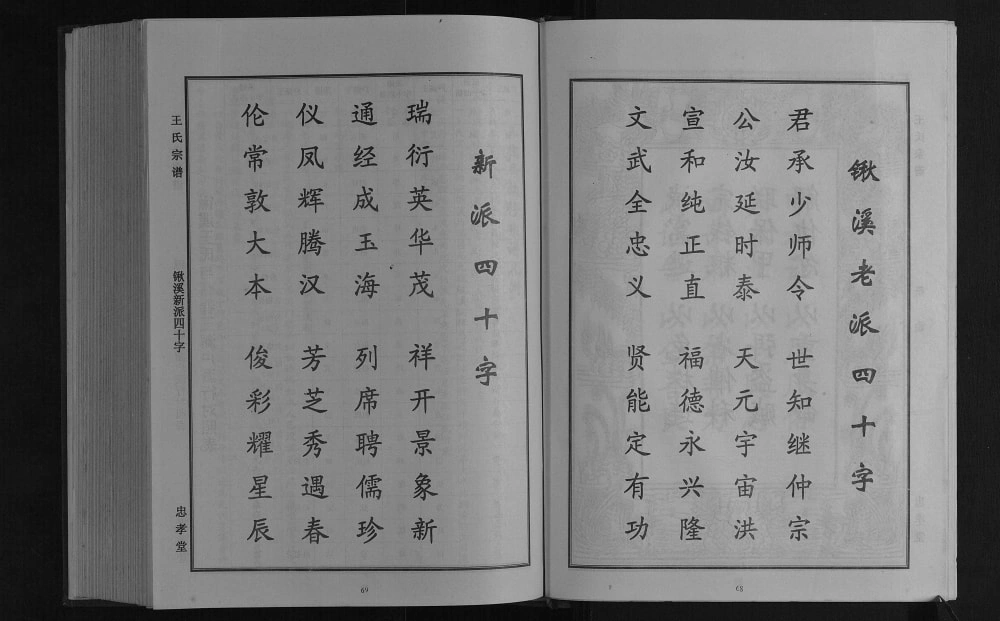 锹溪老派四十字
君承少师令 世知继仲宗
公汝延时泰 天元宇宙洪
宣和纯正直 福德永兴隆
文武全忠义 贤能定有功
68
新派四十字
瑞衍英华茂 祥开景象新
通经成玉海 列席聘儒珍
仪凤辉腾汉 芳芝秀遇春
伦常敦大本 俊彩耀星辰
王氏宗谱
锹溪新派四十字
忠孝堂
69